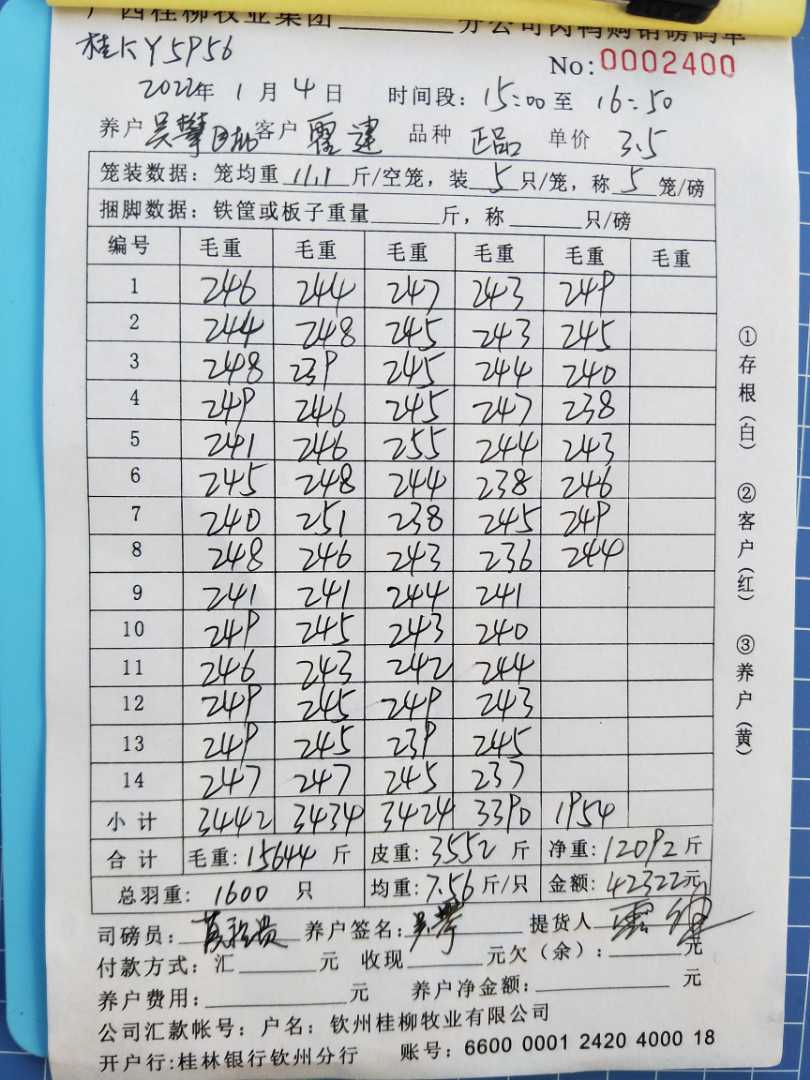 广西桂柳牧业集团______分公司肉鸭购销磅码单
桂KY5956
No:0002400
2022年 1 月 4 日 时间段: 15:00 至 16:50
养户 吴攀 客户 霍建 品种 正品 单价 3.5
笼装数据: 笼均重 11.1 斤/空笼, 装 5 只/笼, 称 5 笼/磅
捆脚数据: 铁筐或板子重量______斤, 称______只/磅
编号 毛重 毛重 毛重 毛重 毛重 毛重
1 246 244 247 243 249
2 244 248 245 243 245
3 248 239 245 244 240
4 249 246 245 247 238
5 241 246 255 244 243
6 245 248 244 238 246
7 240 251 238 245 249
8 248 246 243 236 244
9 241 241 244 241
10 249 245 243 240
11 246 243 242 244
12 249 245 249 243
13 249 245 239 245
14 247 247 245 237
小计 3442 3434 3424 3390 1954
合计 毛重: 15644 斤 皮重: 3552 斤 净重: 12092 斤
总羽重: 1600 只 均重: 7.56 斤/只 金额: 42322元
司磅员: 养户签名: 吴攀 提货人 霍建
付款方式: 汇______元 收现______元欠(余): ______元
养户费用: ______元 养户净金额: ______元
公司汇款帐号: 户名: 钦州桂柳牧业有限公司
开户行: 桂林银行钦州分行 账号: 6600 0001 2420 4000 18
①存根(白) ②客户(红) ③养户(黄)